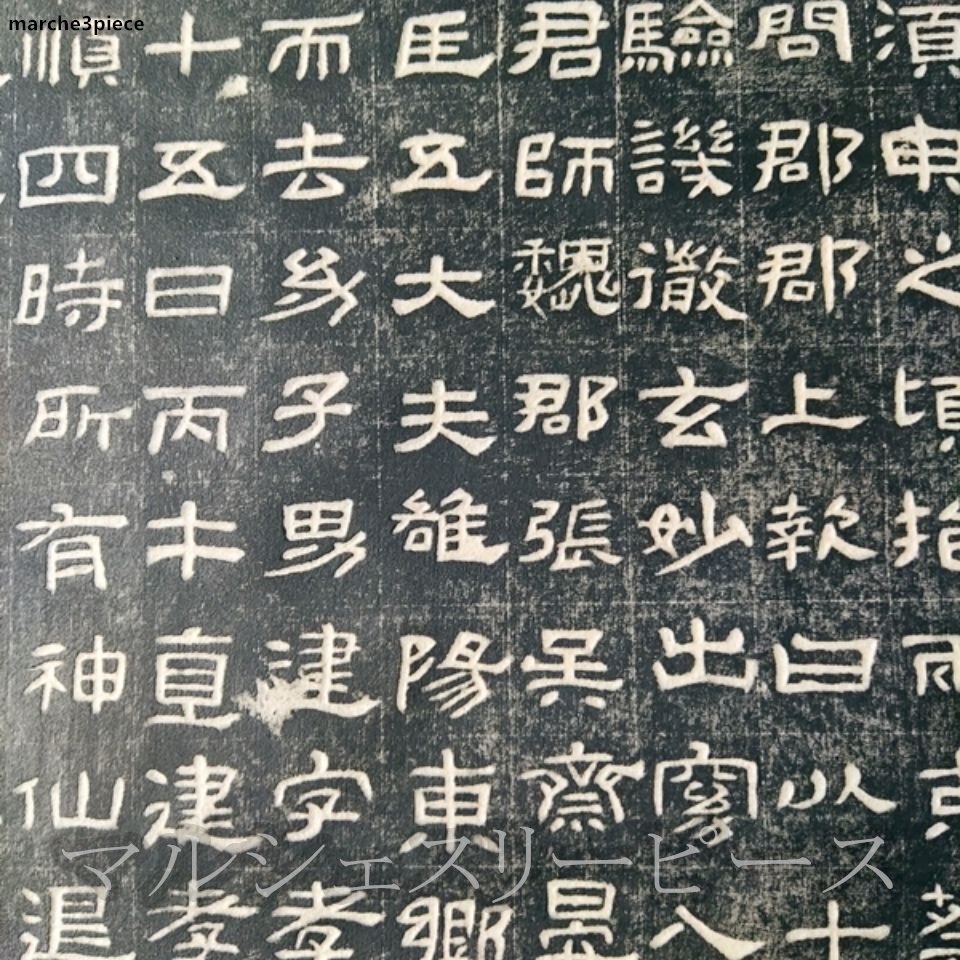 marche3piece
須臾之頃抱兩束葵
問郡郡上報曰以十
驗譏徹玄妙出窈入
君師魏郡張吳齋晏
臣五大夫雒陽東鄉
而去幼子男建字孝
十五日丙午直建孝
順四時所有神仙退
マルシェスリーピース